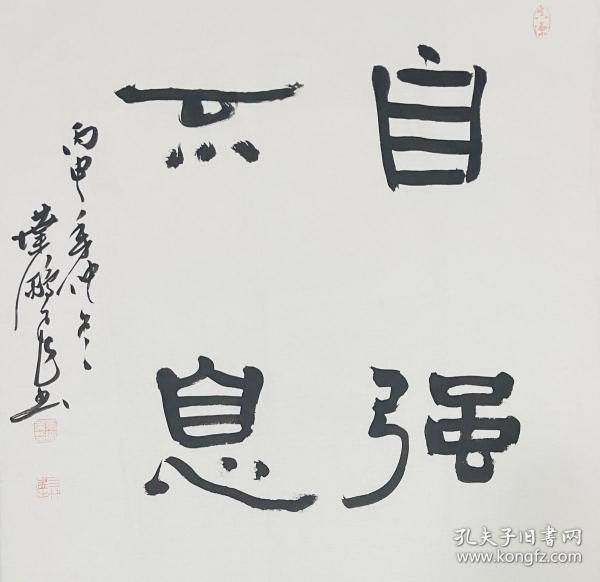 自强
不息
丙申年仲冬
孔夫子旧书网
www.kongfz.com